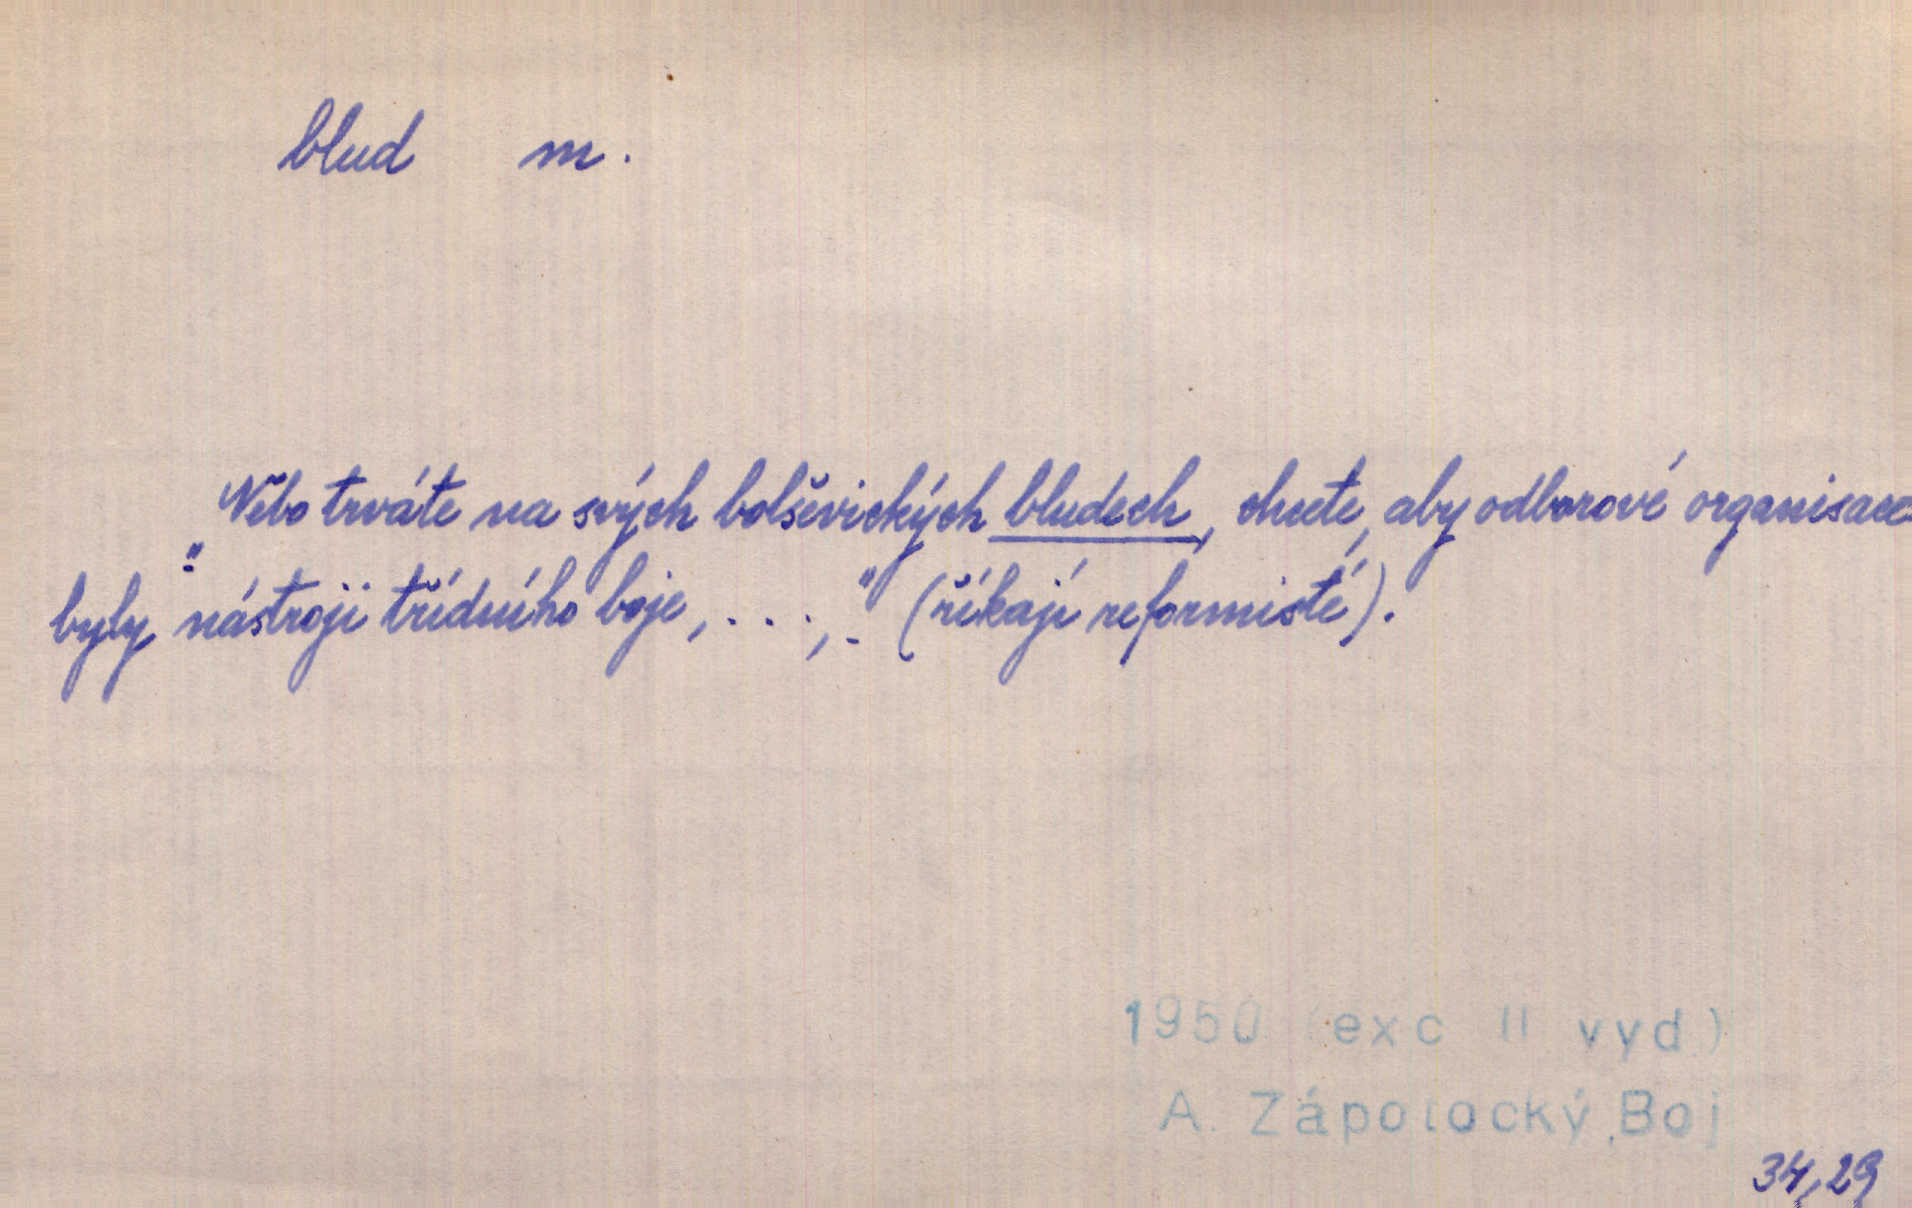 blud m.
„Nebo trváte na svých bolševických bludech, chcete, aby odborové organisace
byly nástroji třídního boje, . . . , .“ (říkají reformisté).
1950 (exc II vyd)
A. Zápotocký, Boj
34,29